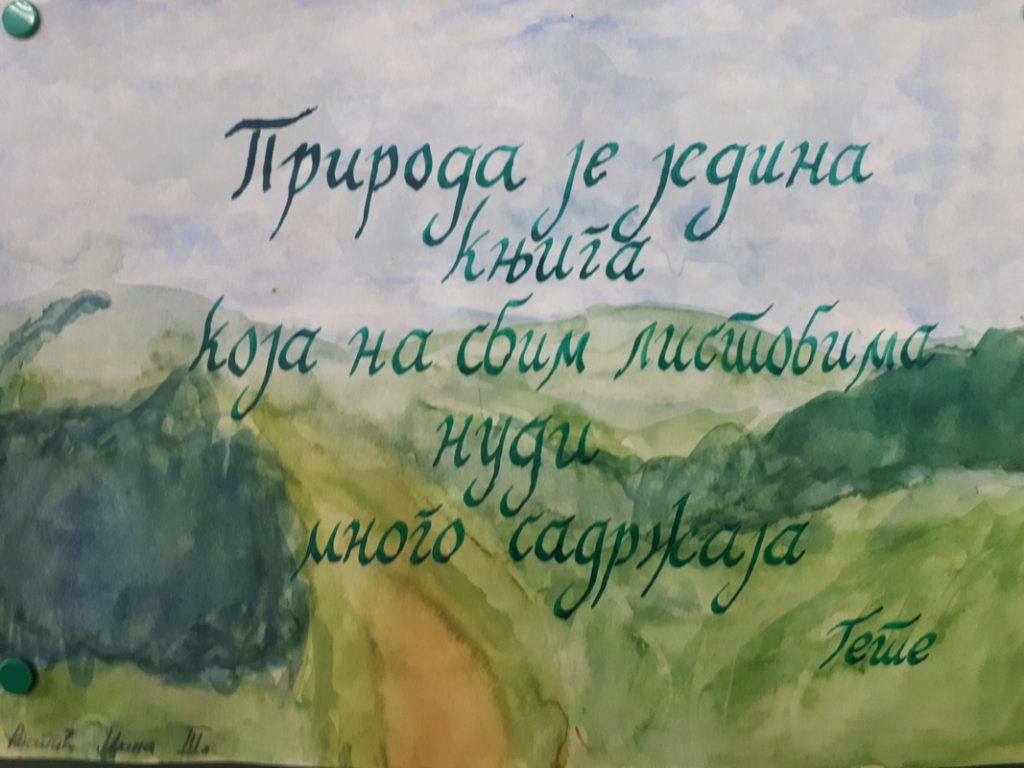 Природа је једина
књига
која на свим листовима
нуди
много садржаја
Гете